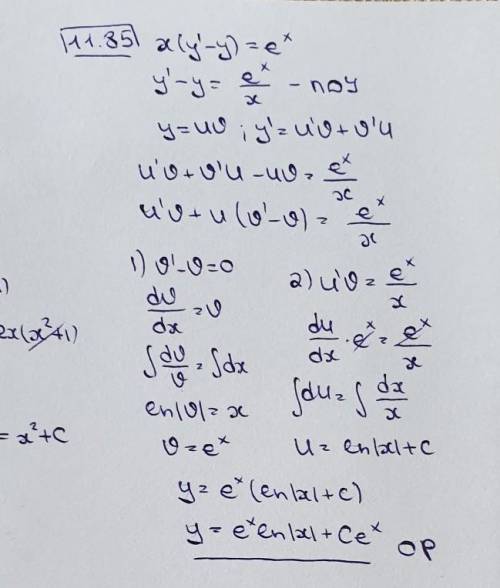 11.85 x(y'-y)=eˣ
y'-y= eˣ/x - ЛДУ
y=uv ; y'=u'v+v'u
u'v+v'u-uv= eˣ/x
u'v+u(v'-v)= eˣ/x
1) v'-v=0
dv/dx =v
∫dv/v=∫dx
ln|v|=x
v=eˣ
2) u'v= eˣ/x
du/dx · eˣ= eˣ/x
∫du=∫ dx/x
u= ln|x|+C
y= eˣ(ln|x|+C)
y= eˣln|x|+Ceˣ ОР
)
2x(x²+1)
=x²+C